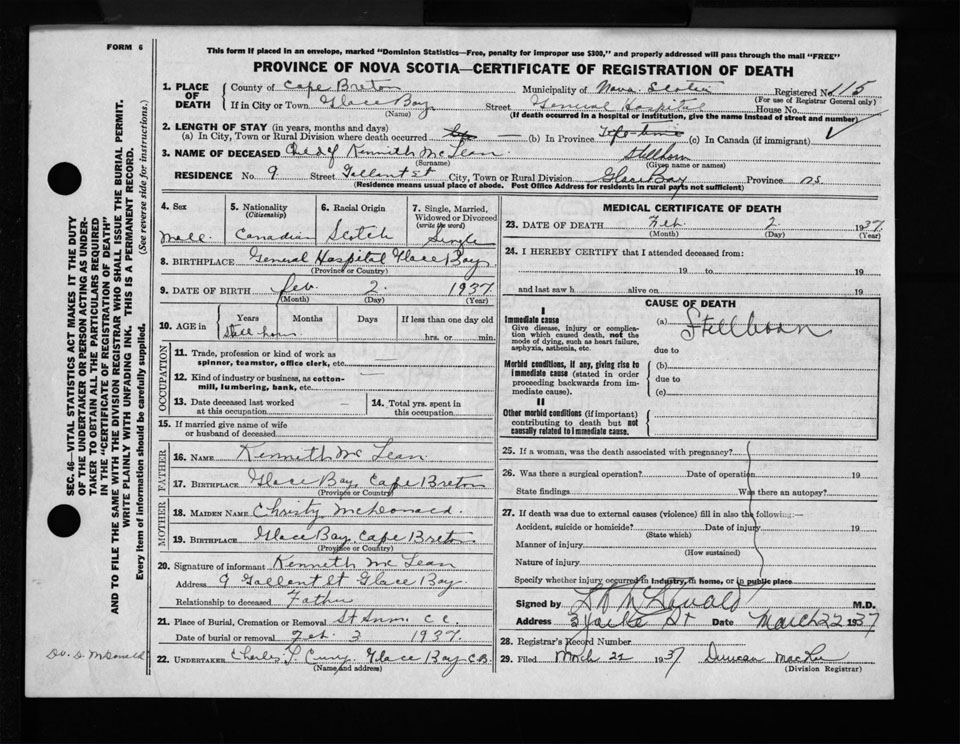 FORM 6
This form if placed in an envelope, marked "Dominion Statistics—Free, penalty for improper use $300," and properly addressed will pass through the mail "FREE"
PROVINCE OF NOVA SCOTIA—CERTIFICATE OF REGISTRATION OF DEATH
1. PLACE OF DEATH { County of Cape Breton Municipality of Nova Scotia Registered No. 115
(For use of Registrar General only)
If in City or Town Glace Bay Street General Hospital House No.
(Name) (If death occurred in a hospital or institution, give the name instead of street and number)
2. LENGTH OF STAY (in years, months and days)
(a) In City, Town or Rural Division where death occurred — (b) In Province (c) In Canada (if immigrant)
3. NAME OF DECEASED Ch. of Kenneth McLean Stillborn
(Surname) (Given name or names)
RESIDENCE No. 9 Street Gallent St City, Town or Rural Division Glace Bay Province N.S.
(Residence means usual place of abode. Post Office Address for residents in rural parts not sufficient)
4. Sex 5. Nationality (Citizenship) 6. Racial Origin 7. Single, Married, Widowed or Divorced (write the word)
Male Canadian Scotch Single
8. BIRTHPLACE General Hospital Glace Bay
(Province or Country)
9. DATE OF BIRTH Feb. 2. 1937
(Month) (Day) (Year)
10. AGE in { Years Months Days If less than one day old
Still born hrs. or min.
OCCUPATION
11. Trade, profession or kind of work as spinner, teamster, office clerk, etc. —
12. Kind of industry or business, as cotton-mill, lumbering, bank, etc. —
13. Date deceased last worked at this occupation — 14. Total yrs. spent in this occupation
15. If married give name of wife or husband of deceased
FATHER
16. NAME Kenneth McLean
17. BIRTHPLACE Glace Bay, Cape Breton
(Province or Country)
MOTHER
18. MAIDEN NAME Christy McDonald.
19. BIRTHPLACE Glace Bay Cape Breton
(Province or Country)
20. Signature of informant Kenneth McLean
Address 9 Gallent St Glace Bay.
Relationship to deceased Father
21. Place of Burial, Cremation or Removal St Ann. C.C.
Date of burial or removal Feb. 3 1937.
22. UNDERTAKER Charles Curry Glace Bay C.B.
(Name and address)
MEDICAL CERTIFICATE OF DEATH
23. DATE OF DEATH Feb. 2 1937
(Month) (Day) (Year)
24. I HEREBY CERTIFY that I attended deceased from:
19 to 19
and last saw h alive on 19
CAUSE OF DEATH
I
Immediate cause
Give disease, injury or complication which caused death, not the mode of dying, such as heart failure, asphyxia, asthenia, etc.
(a) Stillborn
due to
Morbid conditions, if any, giving rise to immediate cause (stated in order proceeding backwards from immediate cause).
(b)
due to
(c)
II
Other morbid conditions (if important) contributing to death but not causally related to immediate cause.
25. If a woman, was the death associated with pregnancy?
26. Was there a surgical operation? Date of operation 19
State findings Was there an autopsy?
27. If death was due to external causes (violence) fill in also the following:—
Accident, suicide or homicide? Date of injury 19
(State which)
Manner of injury
(How sustained)
Nature of injury
Specify whether injury occurred in Industry, in home, or in public place
Signed by McDonald M.D.
Address 3 Yorke St Date March 22 1937
28. Registrar's Record Number
29. Filed March 22 1937 Duncan MacRae
(Division Registrar)
SEC. 46—VITAL STATISTICS ACT MAKES IT THE DUTY
OF THE UNDERTAKER OR PERSON ACTING AS UNDER-
TAKER TO OBTAIN ALL THE PARTICULARS REQUIRED
IN THE "CERTIFICATE OF REGISTRATION OF DEATH"
AND TO FILE THE SAME WITH THE DIVISION REGISTRAR WHO SHALL ISSUE THE BURIAL PERMIT.
WRITE PLAINLY WITH UNFADING INK. THIS IS A PERMANENT RECORD.
Every item of information should be carefully supplied. (See reverse side for instructions.)
Dr. D. McDonald